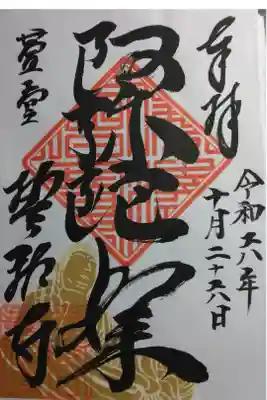 奉拝
令和六年
十月二十六日
阿弥陀如来
誓願寺